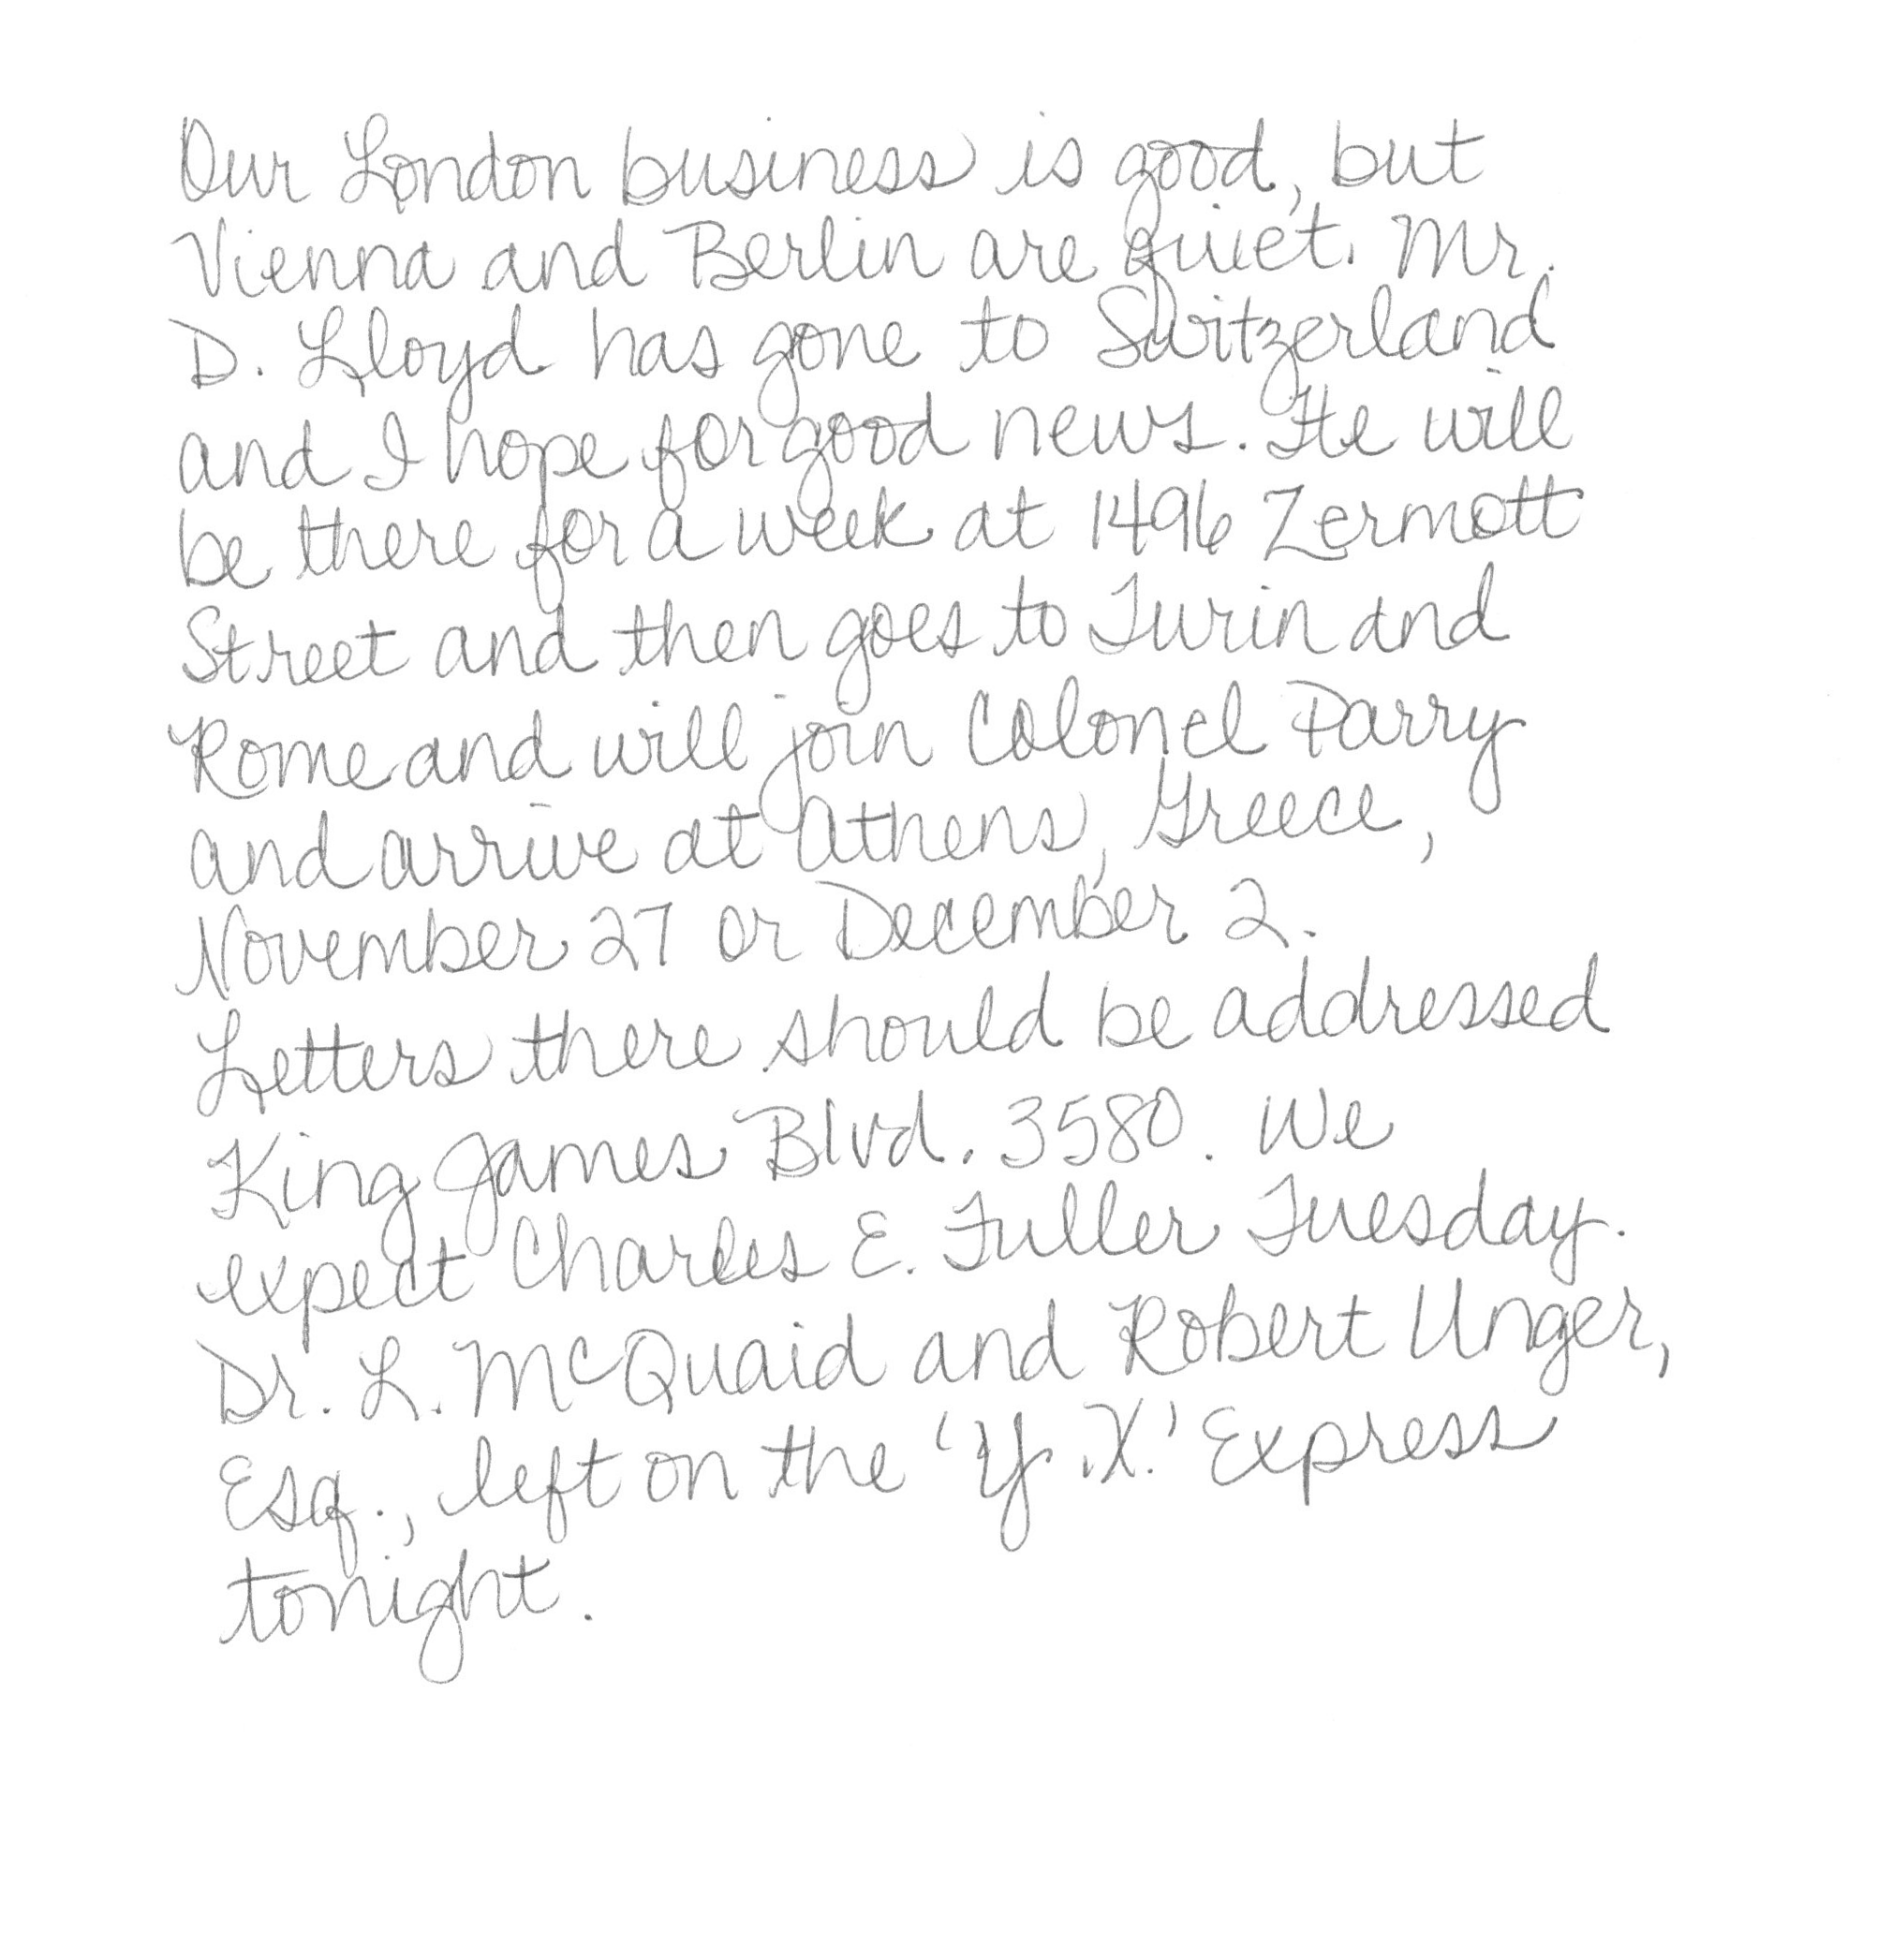 Our London business is good, but
Vienna and Berlin are quiet. Mr.
D. Lloyd has gone to Switzerland
and I hope for good news. He will
be there for a week at 1496 Zermott
Street and then goes to Turin and
Rome and will join Colonel Parry
and arrive at Athens, Greece,
November 27 or December 2.
Letters there should be addressed
King James Blvd. 3580. We
expect Charles E. Fuller Tuesday.
Dr. L. McQuaid and Robert Unger,
Esq., left on the 'Y.X.' Express
tonight.